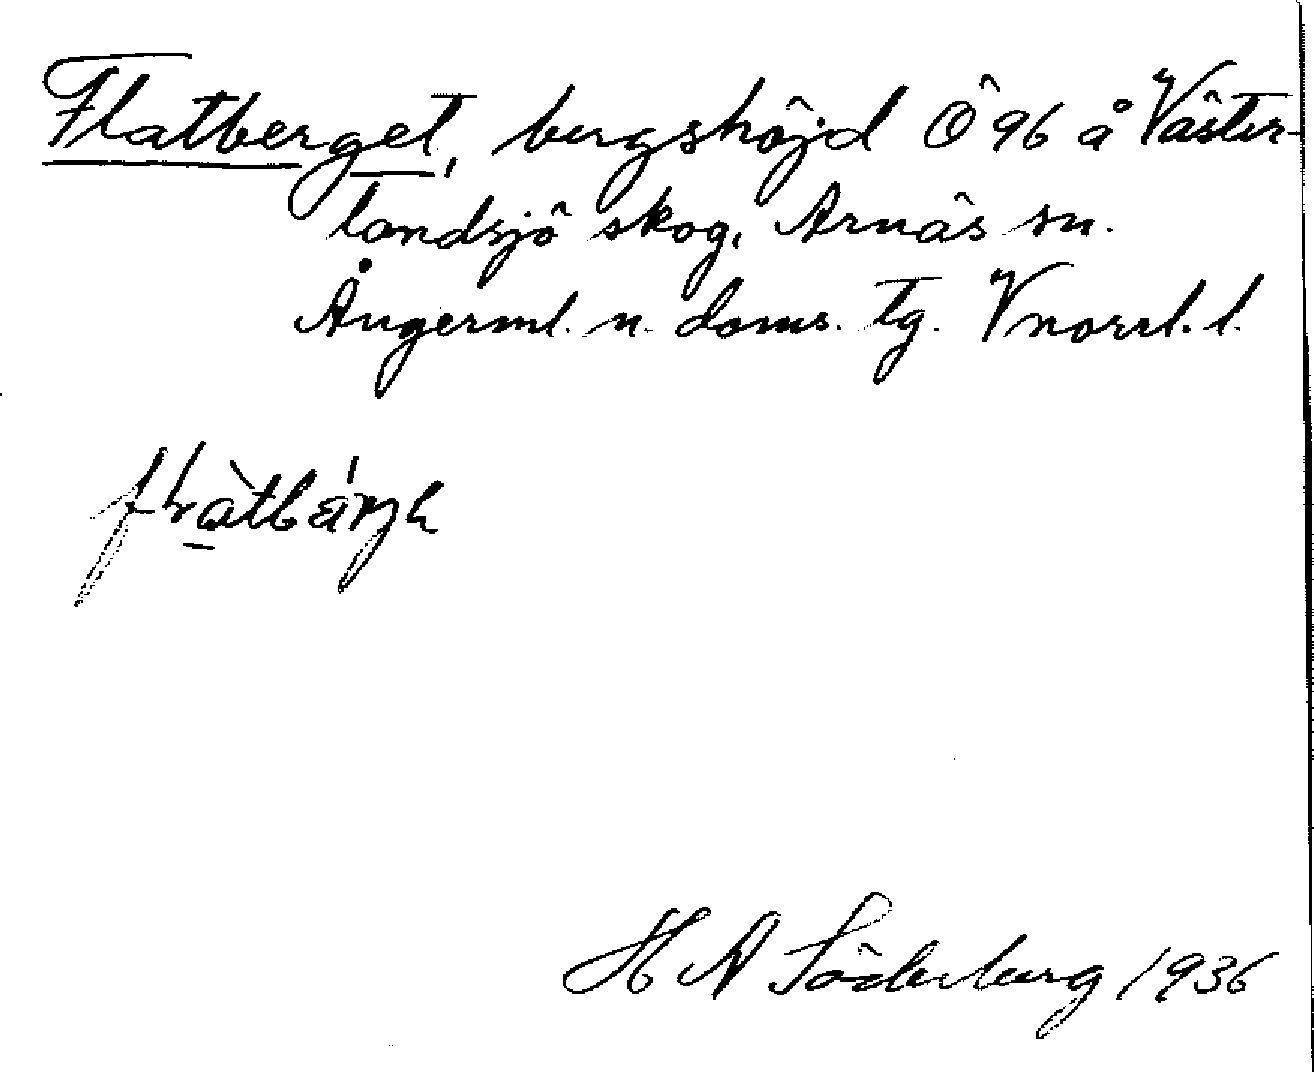 Flatberget, bergshöjd Ö 96 å Väster-
landsjö skog, Arnäs sn.
Ångerml. n. doms. tg. Vnorrl. l.
H A Söderberg 1936